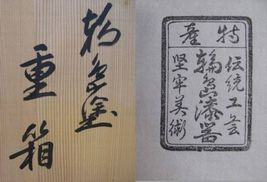 輪島塗
重箱
特産
伝統工芸
輪島漆器
堅牢美術